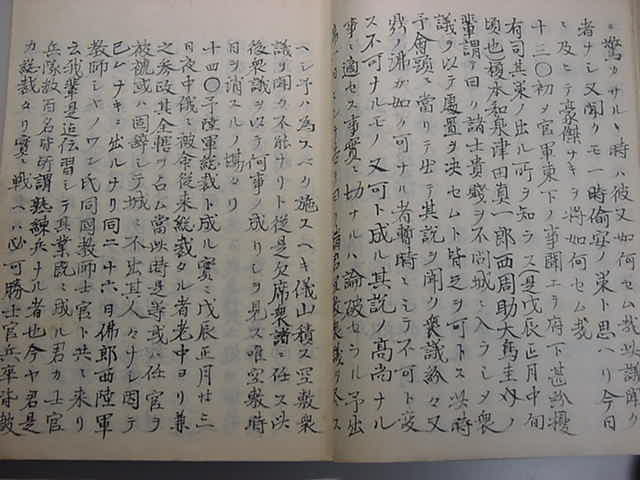 ニ驚カサル、時ハ彼又如何セム哉此議開ク
者ナシ又聞クモ一時偸安ノ策ト思ヘリ今日
ニ及ヒテ豪傑ナキヲ将如何セム哉
十三〇初メ官軍東下ノ事聞エテ府下甚紛擾
有司其策ノ出ル所ヲ知ラス（是戊辰正月中旬
頃也榎本和泉津田真一郎西周助大鳥圭介ノ
輩謂テ曰ク諸士貴賤ヲ不問城ニ入ラシメ衆
議ヲ以テ処置ヲ決セムト皆是ヲ可トス此時
予會頭ニ當リテ出テ其説ヲ聞ク衆議紛々又
戟ノ沸カ如ク可ナル者暫時ニシテ不可ト変
ス不可ナルモノ又可ト成ル其説ノ高尚ナル
事ニ適セス事實ニ切ナルハ論破セラル予出
ヘシ予ハ為スベク施スヘキ儀山積ス空敷衆
議ヲ聞ク不能ナリト従是欠席衆諸ニ任ス此
後衆議ヲ以テ何事ノ成リシヲ見ス唯空敷時
日ヲ消スルノ場ナリ
十四〇予陸軍総裁ト成ル實ニ戊辰正月廿三
日夜中俄ニ被命従来総裁タル者老中ヨリ兼
之参政其全悃ヲ名ム當此時是等或ハ任官ヲ
放視或ハ固辞シテ城ニ不出其人々ナシ因テ
已ムナキニ出ルナリ同二十六日佛郎西陸軍
教師シヤノワン氏同國教師士官ト共ニ来リ
云我輩是迄伝習シテ其業既ニ成ル君カ士官
兵隊数百名皆所謂熟練兵ナル者也今ヤ君是
カ総裁タリ實ニ戦ヘハ必可勝士官兵卒皆鼓